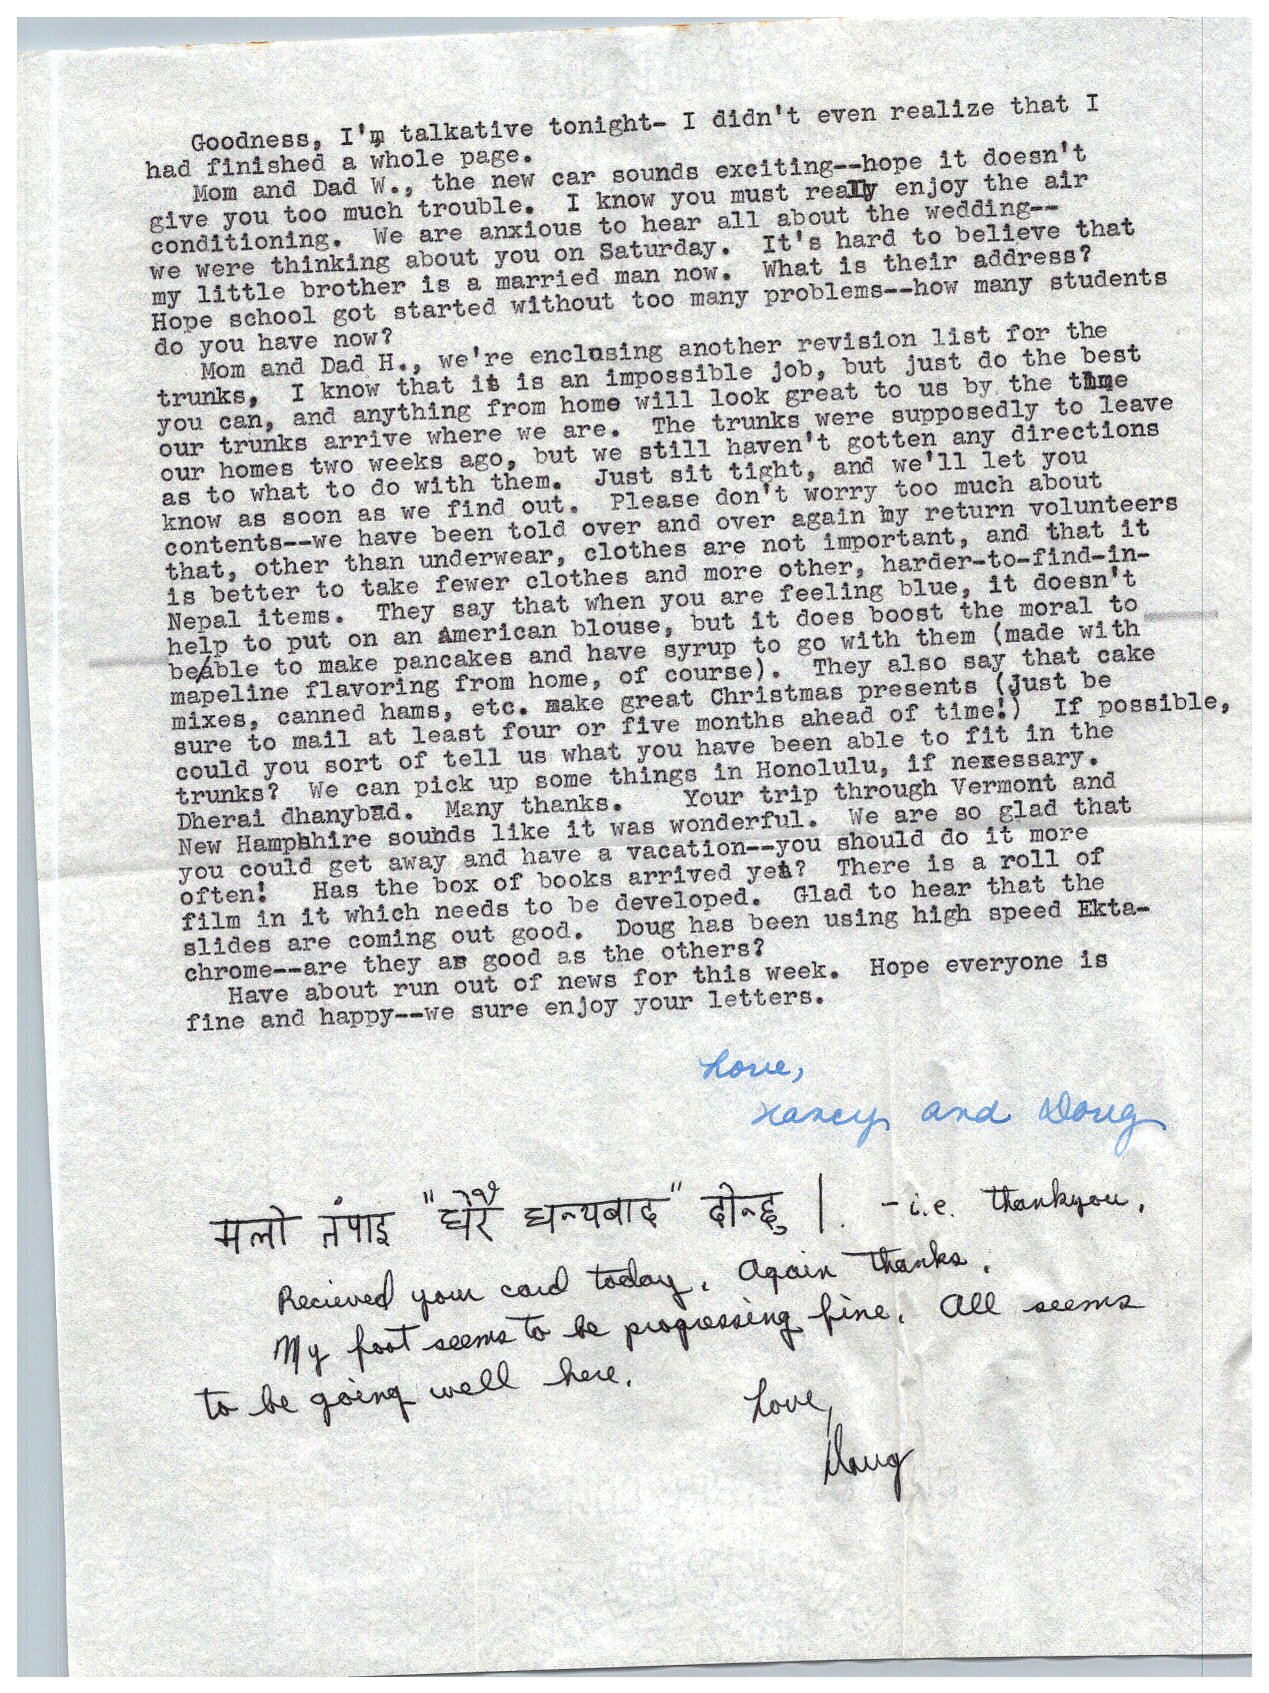 Goodness, I'm talkative tonight- I didn't even realize that I
had finished a whole page.
Mom and Dad W., the new car sounds exciting--hope it doesn't
give you too much trouble. I know you must really enjoy the air
conditioning. We are anxious to hear all about the wedding--
we were thinking about you on Saturday. It's hard to believe that
my little brother is a married man now. What is their address?
Hope school got started without too many problems--how many students
do you have now?
Mom and Dad H., we're enclosing another revision list for the
trunks, I know that it is an impossible job, but just do the best
you can, and anything from home will look great to us by the time
our trunks arrive where we are. The trunks were supposedly to leave
our homes two weeks ago, but we still haven't gotten any directions
as to what to do with them. Just sit tight, and we'll let you
know as soon as we find out. Please don't worry too much about
contents--we have been told over and over again by return volunteers
that, other than underwear, clothes are not important, and that it
is better to take fewer clothes and more other, harder-to-find-in-
Nepal items. They say that when you are feeling blue, it doesn't
help to put on an American blouse, but it does boost the moral to
be/able to make pancakes and have syrup to go with them (made with
mapeline flavoring from home, of course). They also say that cake
mixes, canned hams, etc. make great Christmas presents (just be
sure to mail at least four or five months ahead of time!) If possible,
could you sort of tell us what you have been able to fit in the
trunks? We can pick up some things in Honolulu, if necessary.
Dherai dhanybad. Many thanks. Your trip through Vermont and
New Hampshire sounds like it was wonderful. We are so glad that
you could get away and have a vacation--you should do it more
often! Has the box of books arrived yet? There is a roll of
film in it which needs to be developed. Glad to hear that the
slides are coming out good. Doug has been using high speed Ekta-
chrome--are they as good as the others?
Have about run out of news for this week. Hope everyone is
fine and happy--we sure enjoy your letters.
Love,
Nancy and Doug
मलो तंपाइ "धेरै धन्यबाद" दीन्छु | - i.e. thankyou.
Recieved your card today. Again thanks.
My foot seems to be progressing fine. All seems
to be going well here.
Love,
Doug